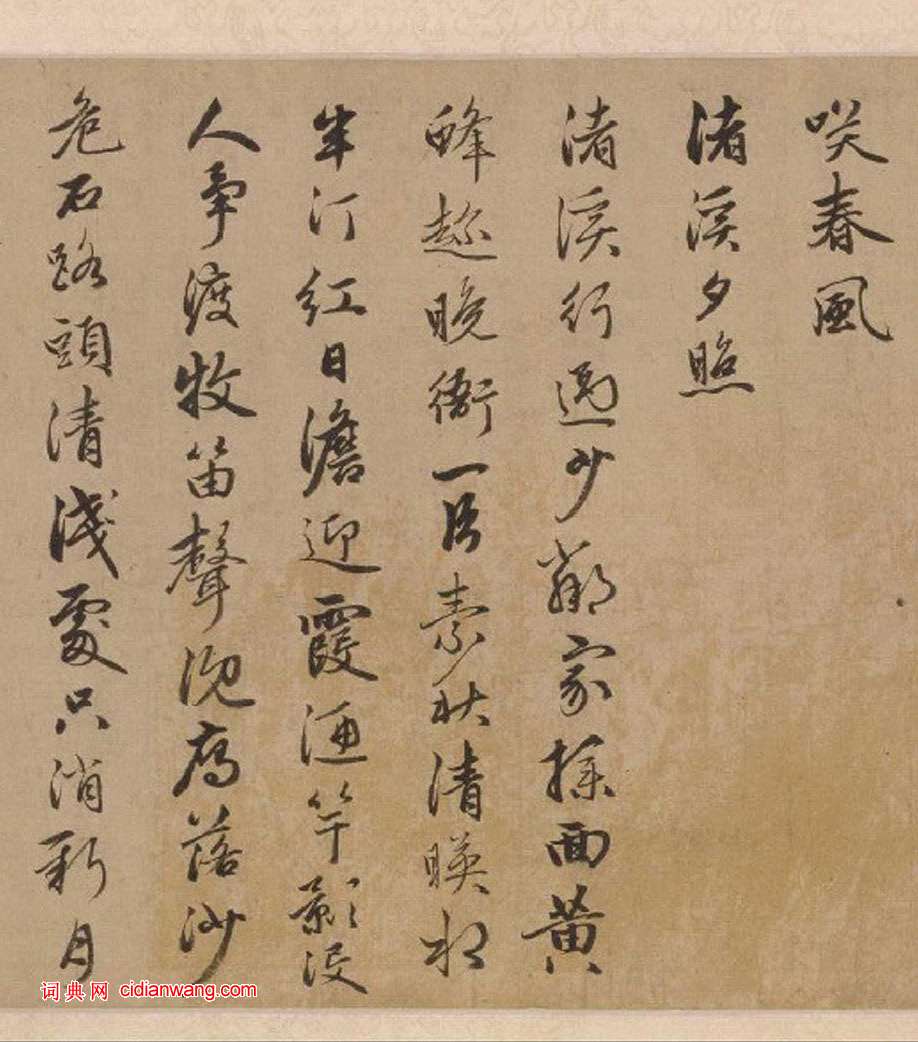 咲春風
渚溪夕照
渚溪行過少鄰家撲面黄
蜂趂晚衙一片素秋清暎水
半汀紅日澹迎霞漁竿影没
人爭渡牧笛聲沉鴈落沙
危石路頭清淺處只消新月
词典网 cidianwang.com